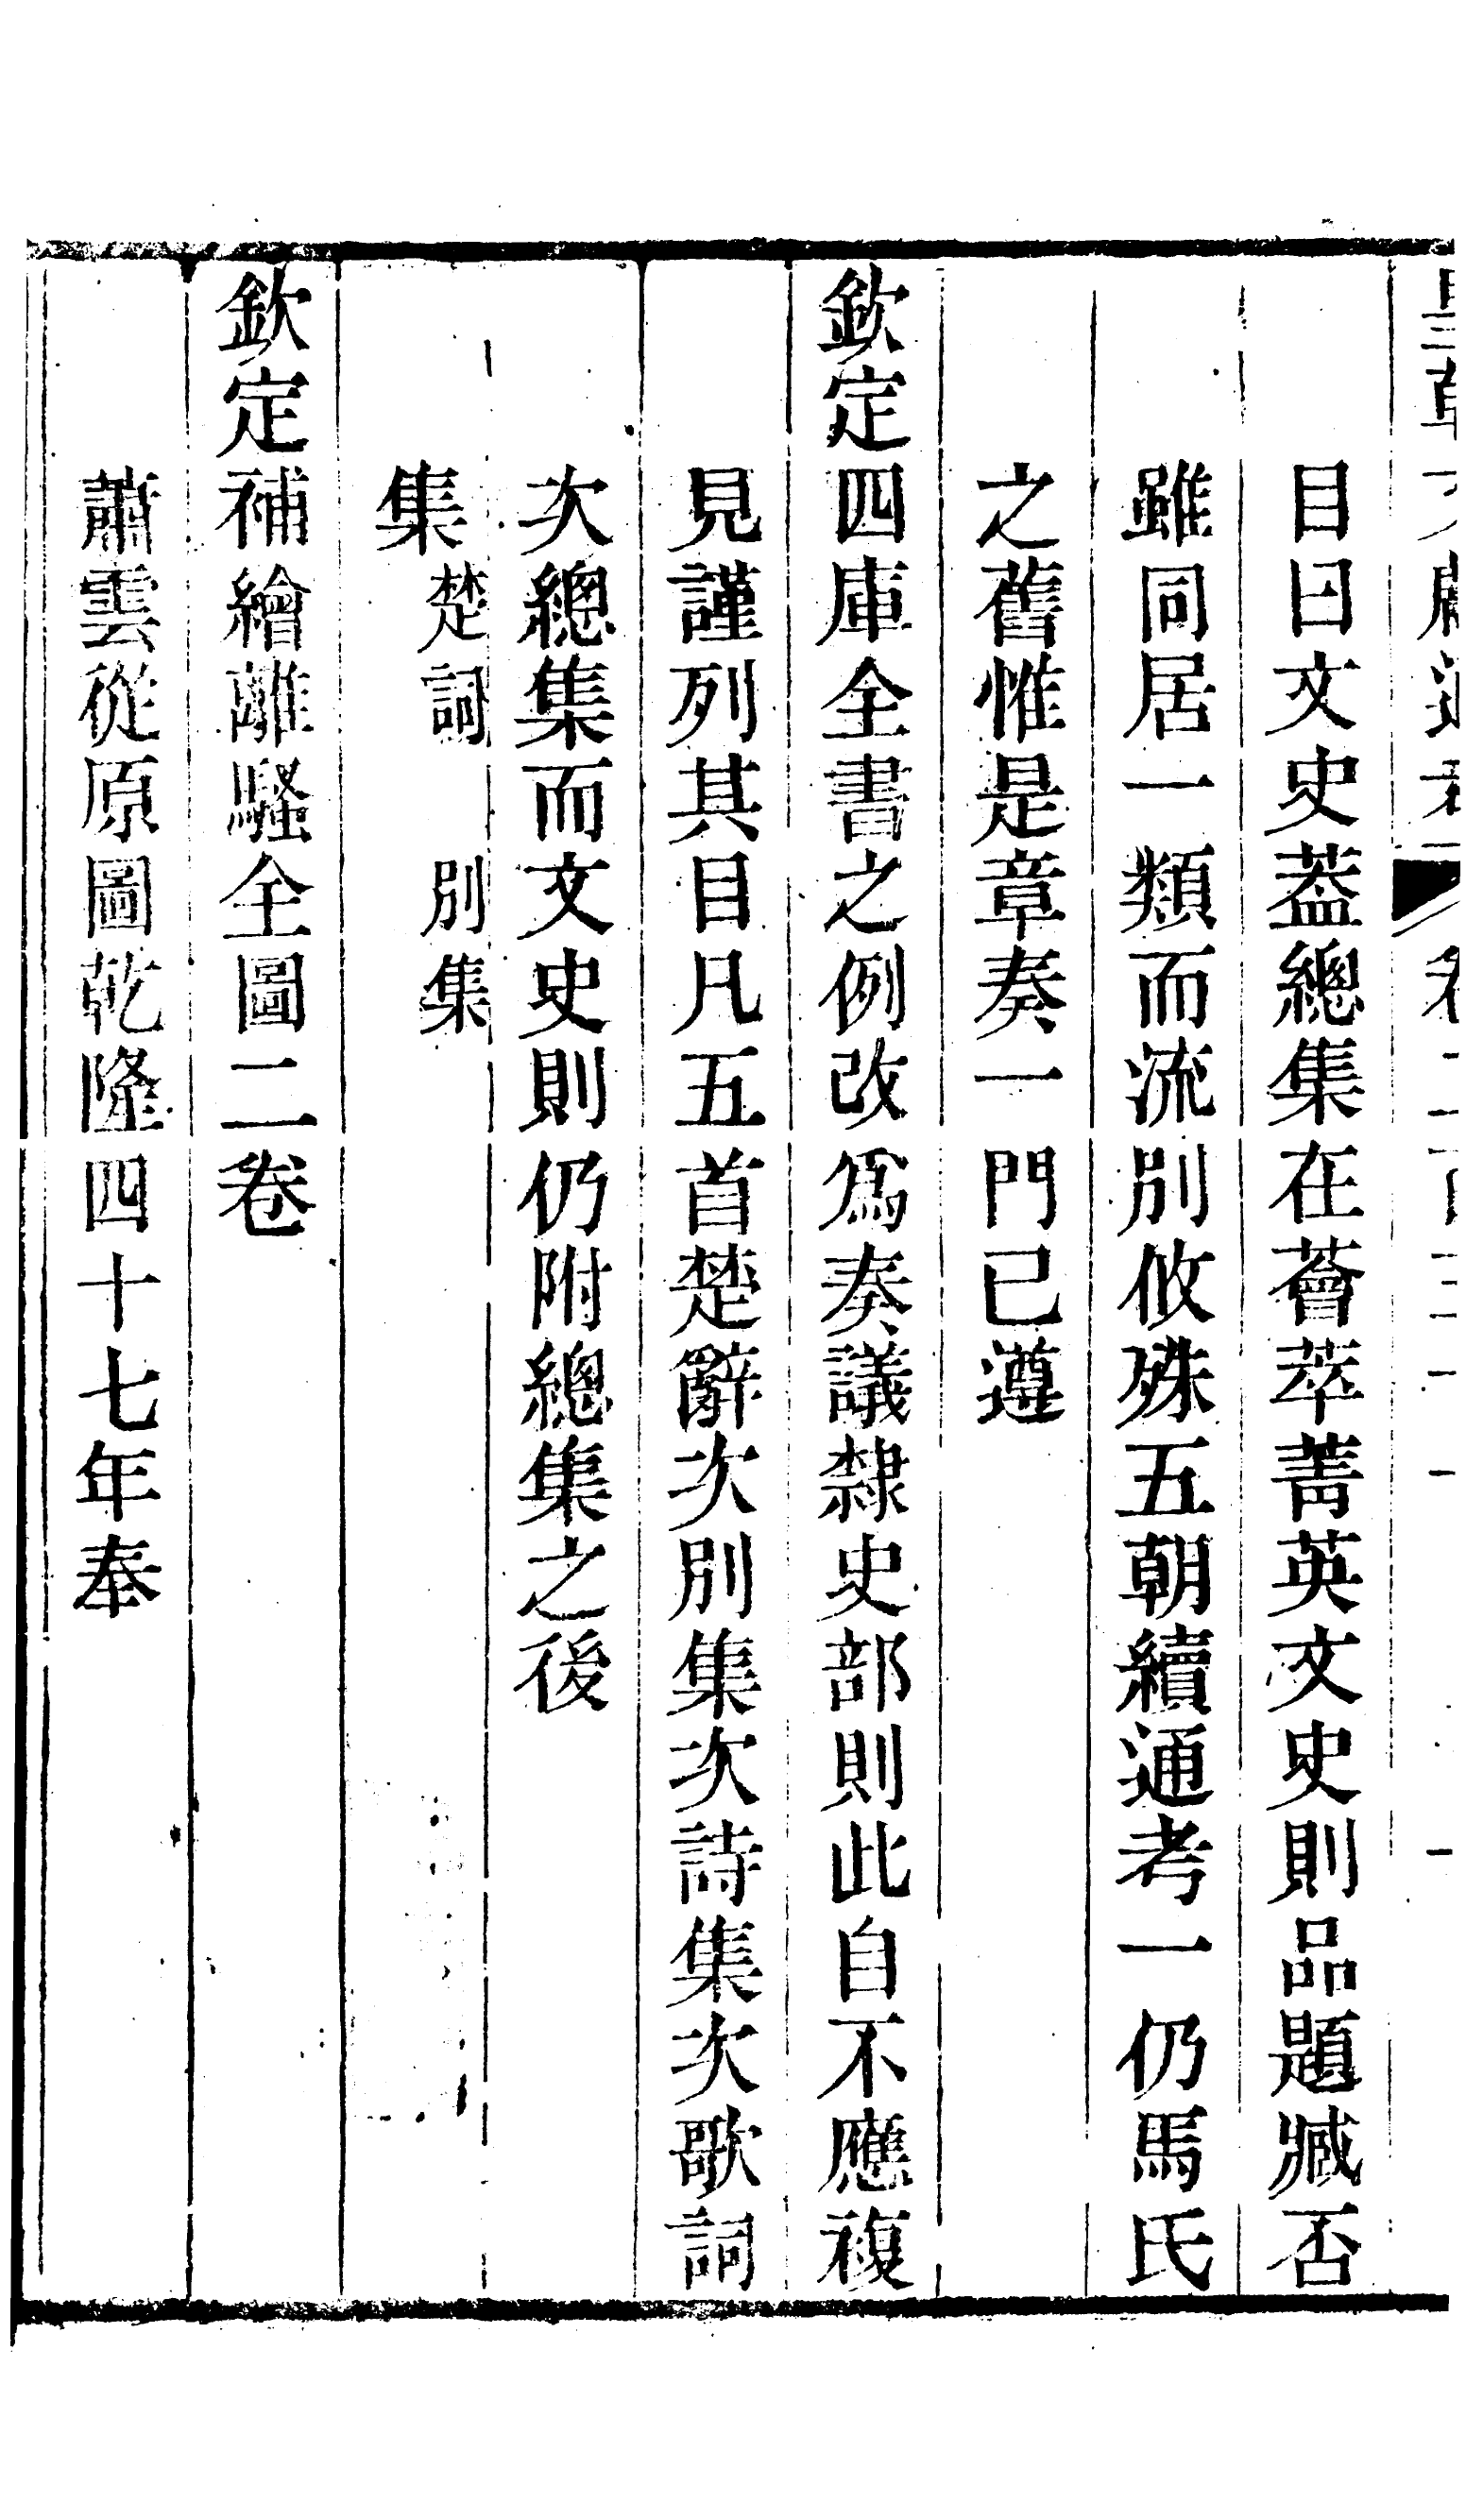 目曰文史蓋總集在薈萃菁英文史則品題臧否
雖同居一類而流別攸殊五朝續通考一仍馬氏
之舊惟是章奏一門已遵
欽定四庫全書之例改爲奏議隸史部則此自不應複
見謹列其目凡五首楚辭次別集次詩集次歌詞
次總集而文史則仍附總集之後
集楚詞 別集
欽定補繪離騷全圖二卷
蕭雲從原圖乾隆四十七年奉